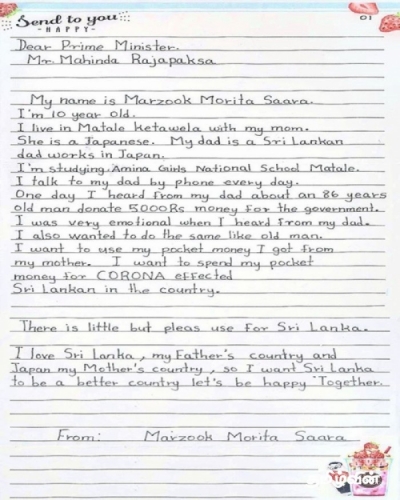 Send to you
- HAPPY -
01
Dear Prime Minister.
Mr. Mahinda Rajapaksa
My name is Marzook Morita Saara.
I'm 10 year old.
I live in Matale ketawela with my mom.
She is a Japanese. My dad is a Sri Lankan
dad works in Japan.
I'm studying Amina Girls National School Matale.
I talk to my dad by phone every day.
One day I heard from my dad about an 86 years
old man donate 5000Rs money for the government.
I was very emotional when I heard from my dad.
I also wanted to do the same like old man.
I want to use my pocket money I got from
my mother. I want to spend my pocket
money for CORONA effected
Sri Lankan in the country.
There is little but pleas use for Sri Lanka.
I love Sri Lanka, my Father's country and
Japan my Mother's country, so I want Sri Lanka
to be a better country let's be happy Together.
From: Marzook Morita Saara